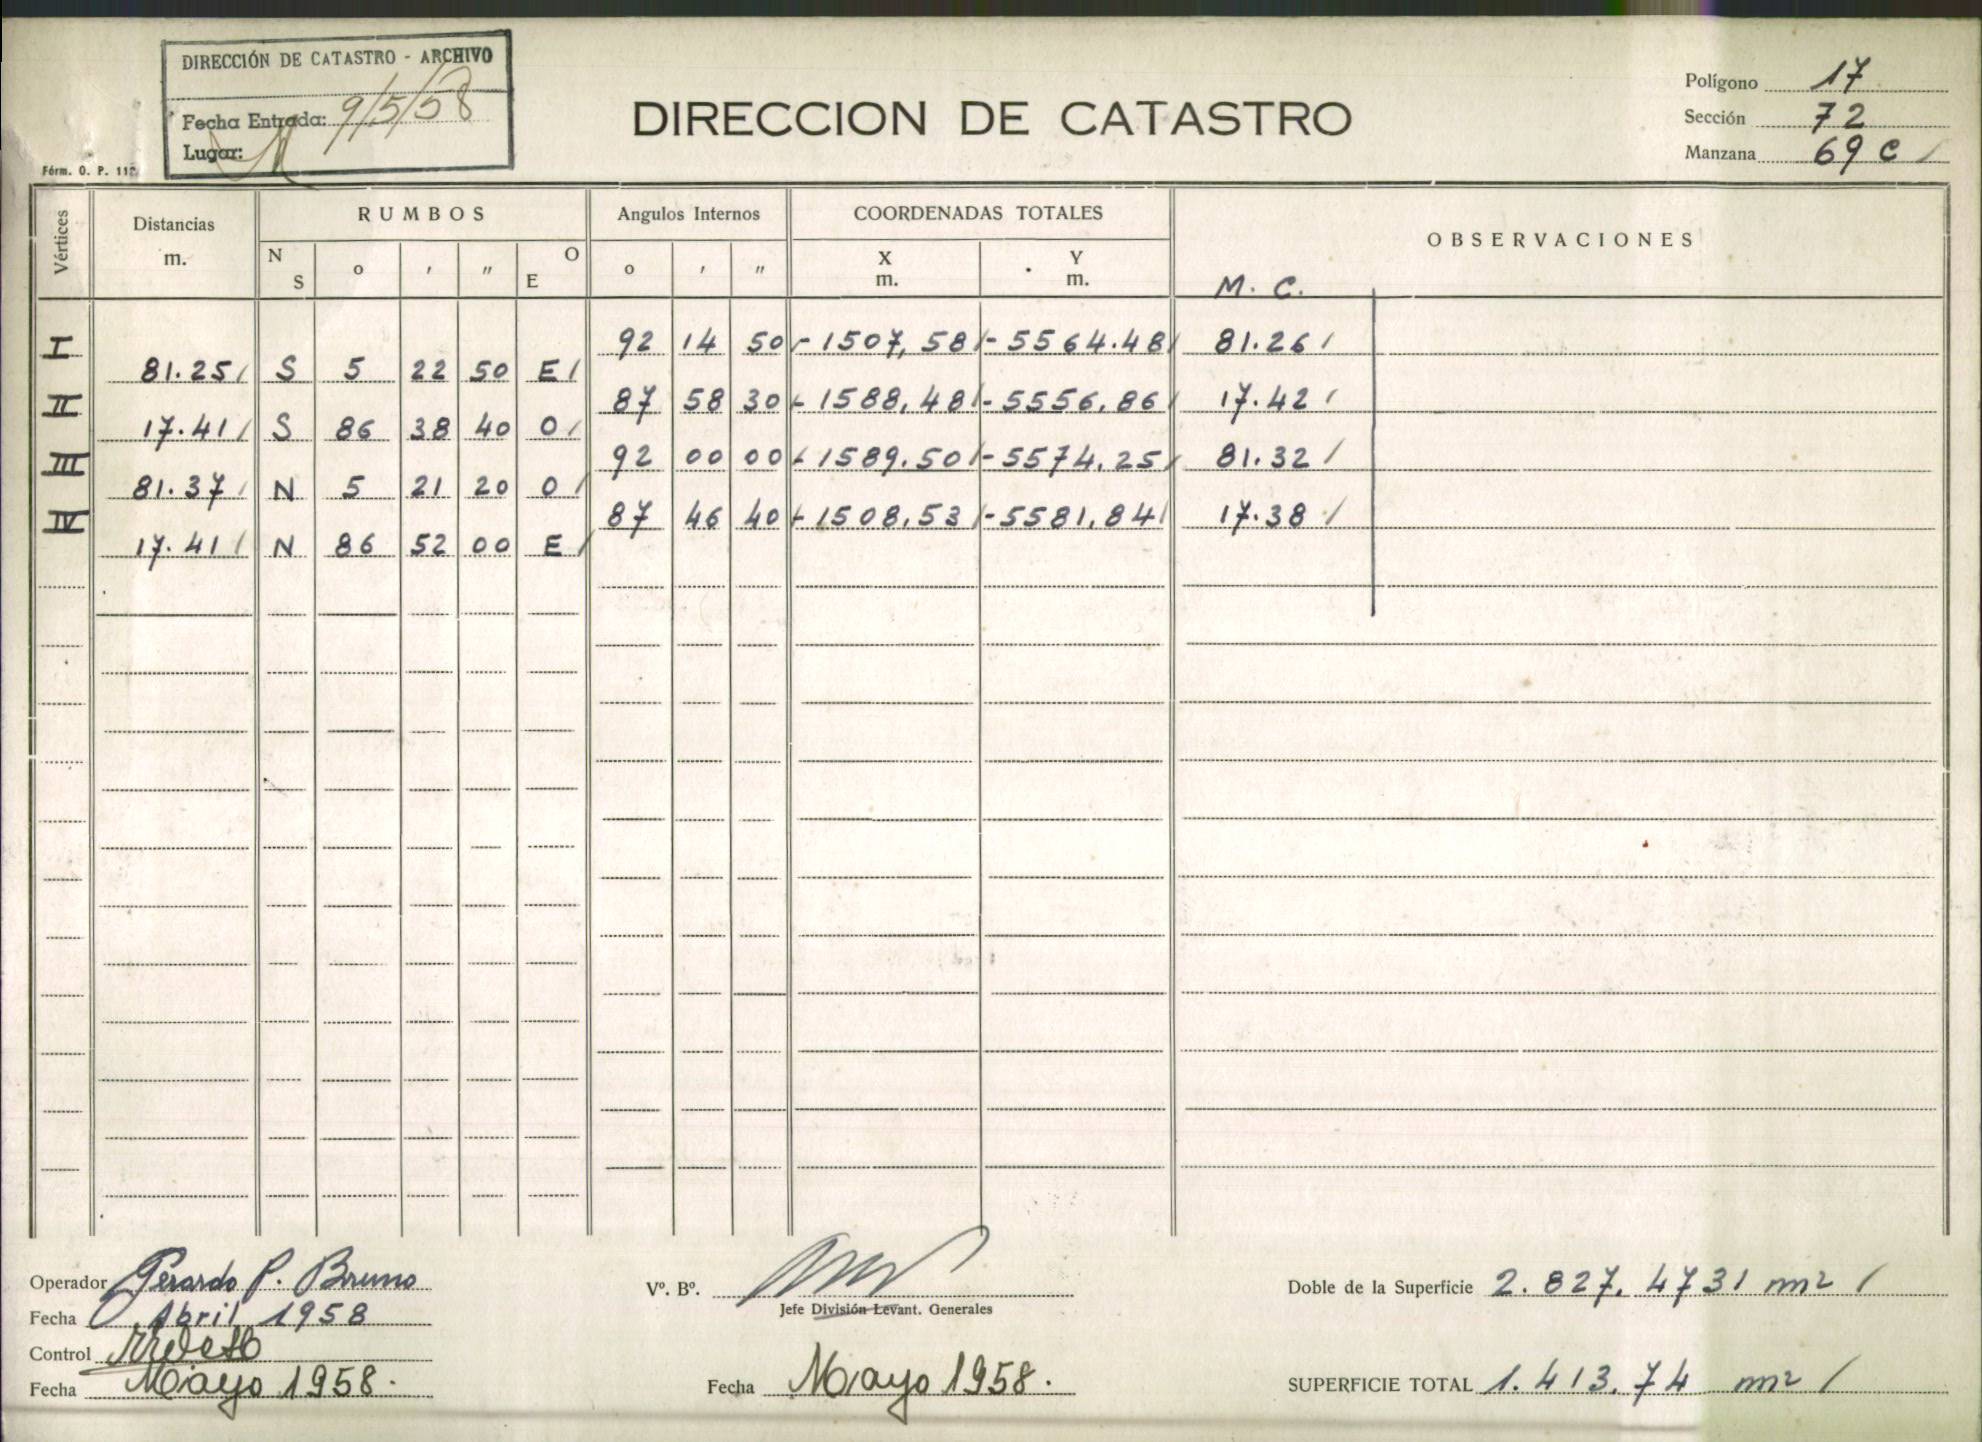 DIRECCIÓN DE CATASTRO - ARCHIVO
Fecha Entrada: 9/5/58
Lugar:
Fórm. O. P. 112
DIRECCION DE CATASTRO
Polígono 17
Sección 72
Manzana 69 C /
Vértices Distancias m. RUMBOS Angulos Internos COORDENADAS TOTALES OBSERVACIONES
N S o ' " O E o ' " X m. Y m.
M. C.
I 92 14 50 - 1507,58 / - 5564.48 / 81.26 /
81.25 / S 5 22 50 E /
II 87 58 30 - 1588,48 / - 5556,86 / 17.42 /
17.41 / S 86 38 40 O /
III 92 00 00 - 1589.50 / - 5574.25 / 81.32 /
81.37 / N 5 21 20 O /
IV 87 46 40 - 1508,53 / - 5581,84 / 17.38 /
17.41 / N 86 52 00 E /
Operador Gerardo P. Bruno
Fecha Abril 1958
Control
Fecha Mayo 1958.
Vº. Bº.
Jefe División Levant. Generales
Fecha Mayo 1958.
Doble de la Superficie 2.827.4731 m2 /
SUPERFICIE TOTAL 1.413.74 m2 /